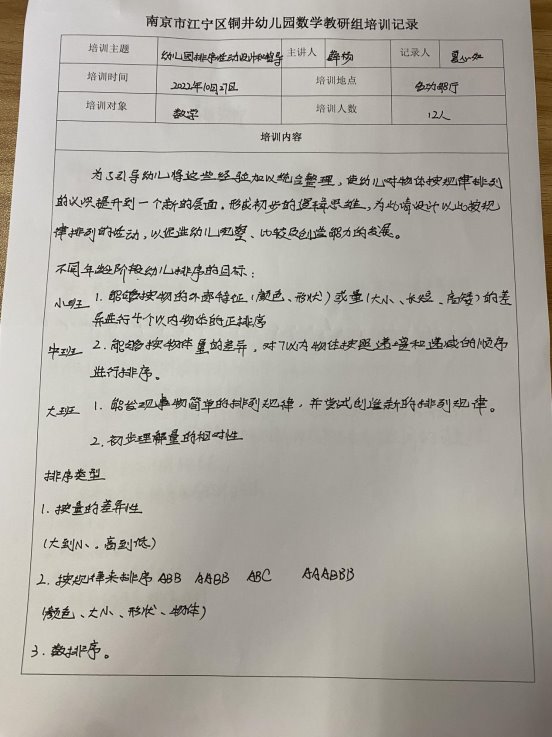 南京市江宁区铜井幼儿园数学教研组培训记录
培训主题 幼儿园排序活动设计和指导 主讲人 记录人
培训时间 2022年10月27日 培训地点 多功能厅
培训对象 数学 培训人数 12人
培训内容
为了引导幼儿将这些经验加以统合整理，使幼儿对物体按规律排列
的认识提升到一个新的层面。形成初步的逻辑思维，为此请设计以此按规
律排列的活动，以促进幼儿观察、比较及创造能力的发展。
不同年龄阶段幼儿排序的目标：
小班 1. 能够按物的外部特征（颜色、形状）或量（大小、长短、高矮）的差
异进行4个以内物体的正排序
中班 2. 能够按物体量的差异，对7以内物体按照递增和递减的顺序
进行排序。
大班 1. 能发现事物简单的排列规律，并尝试创造新的排列规律。
2. 初步理解量的相对性
排序类型
1. 按量的差异性
（大到小、高到低）
2. 按规律来排序 ABB AABB ABC AAABBB
（颜色、大小、形状、物体）
3. 数排序。